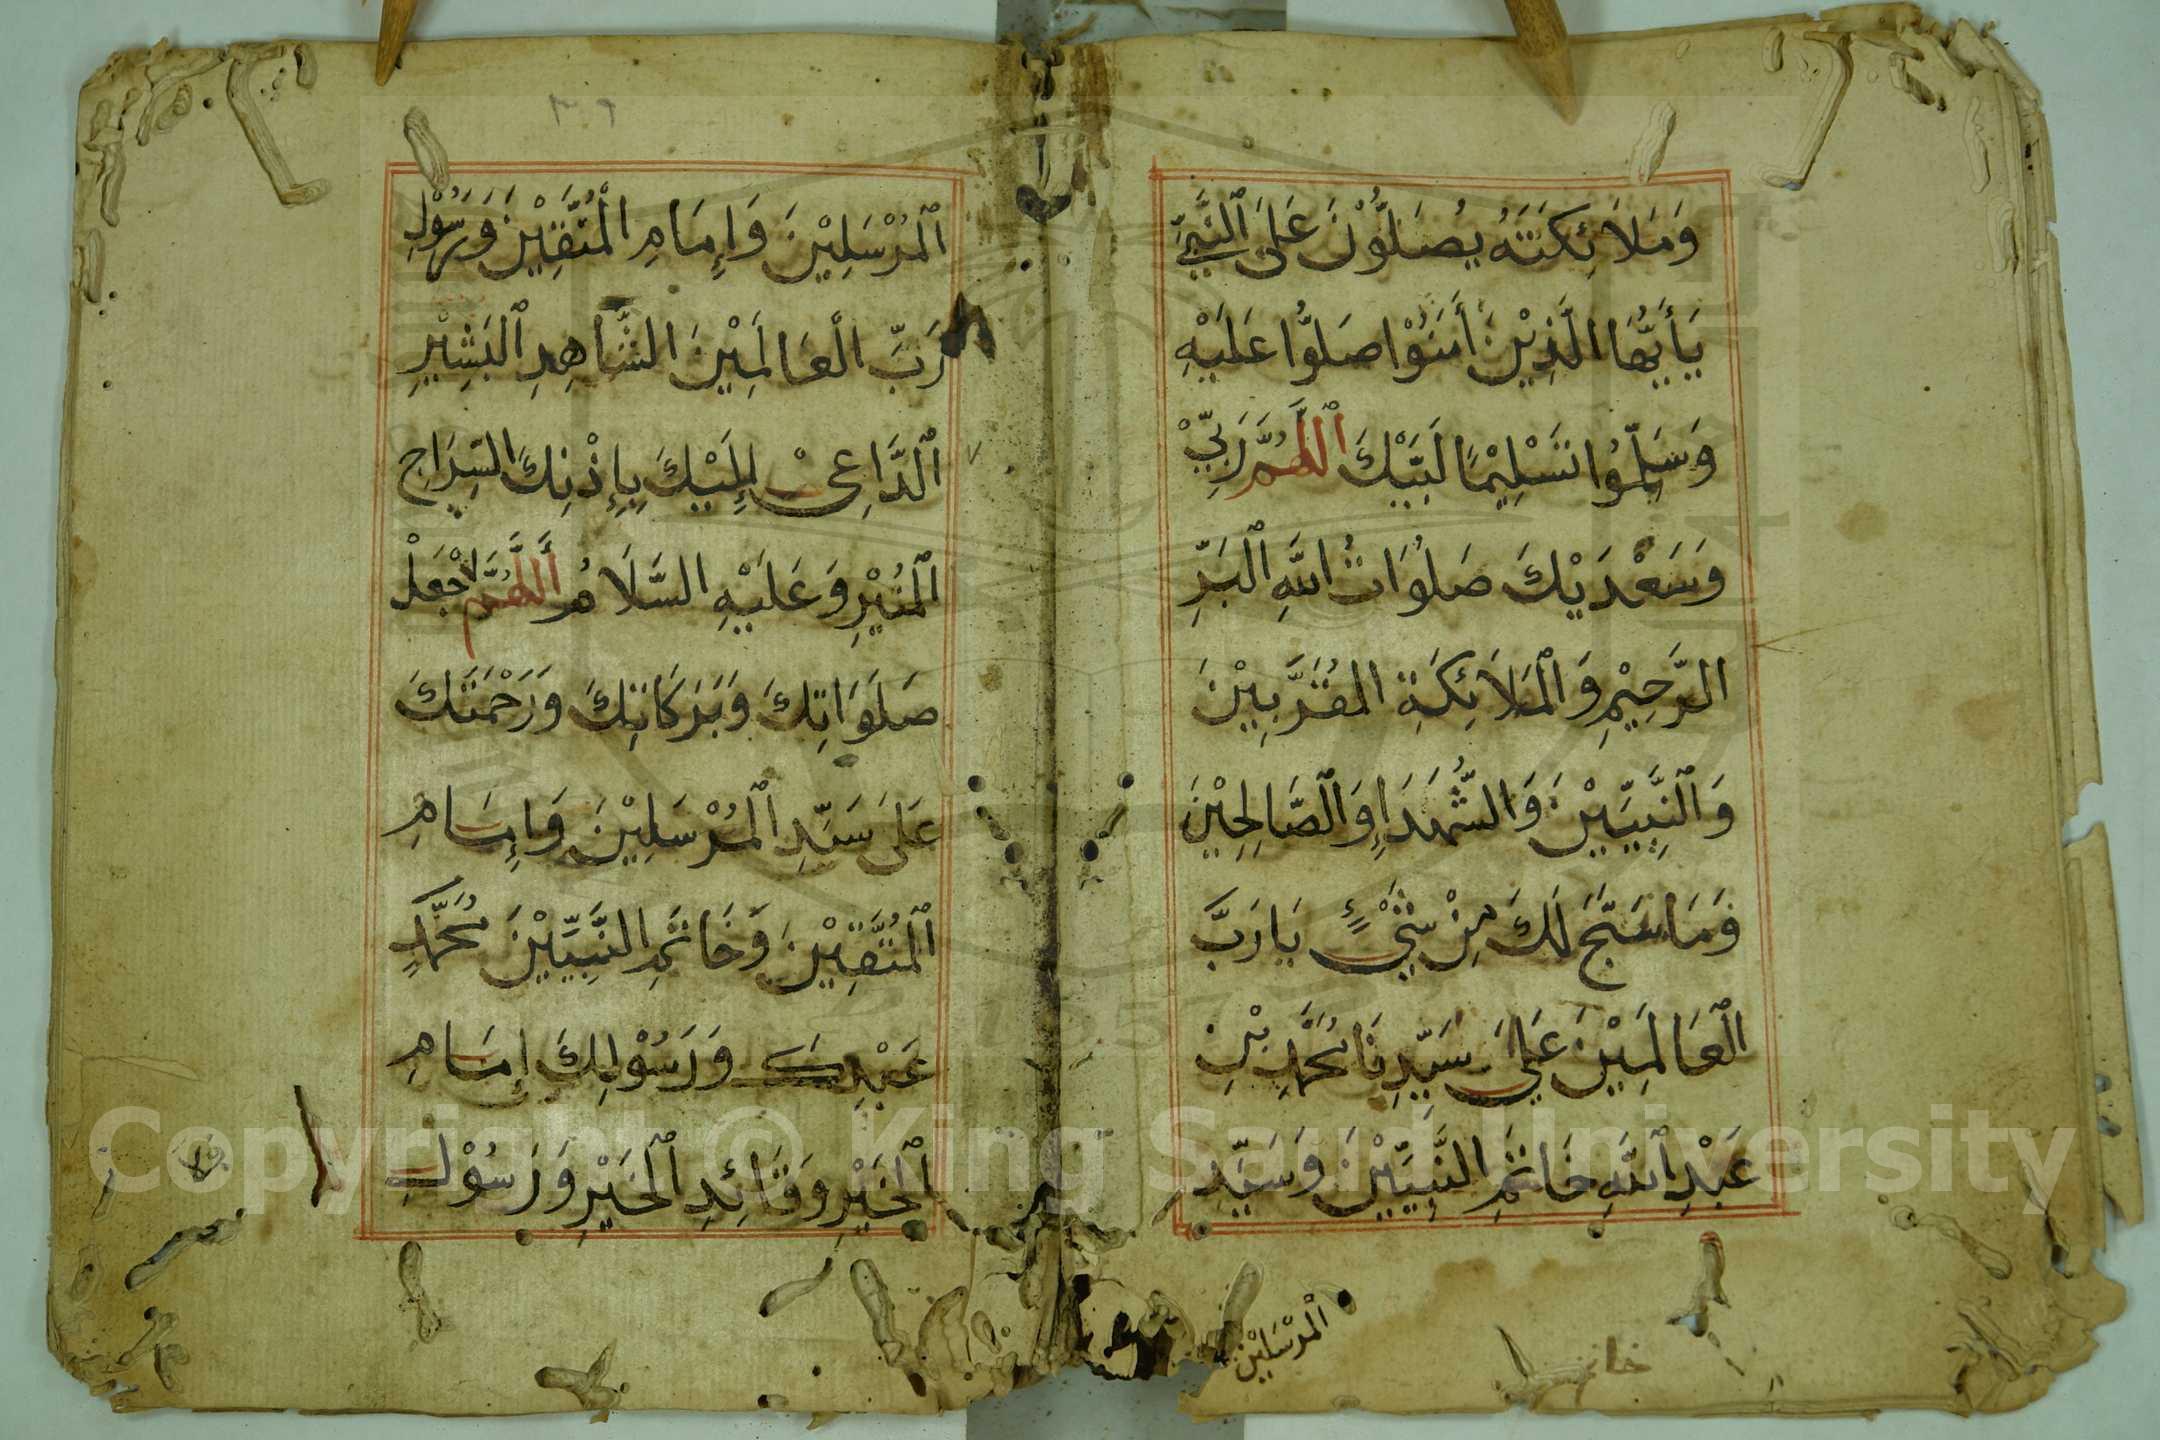 وَمَلَائِكَتَهُ يُصَلُّوْنَ عَلَى ٱلنَّبِيِّ
يَأَيُّهَا الَّذِيْنَ أَمَنُوْا صَلُّوا عَلَيْهِ
وَسَلِّمُوا تَسْلِيْمًا لَبَّيْكَ ٱللَّهُمَّ رَبِّيْ
وَسَعْدَيْكَ صَلَوَاتُ اللهِ ٱلْبَرِّ
الرَّحِيْمِ وَٱلْمَلَائِكَةِ المُقَرَّبِيْنَ
وَٱلنَّبِيِّيْنَ وَالشُّهَدَاءِ وَٱلصَّالِحِيْنَ
وَمَا سَبَّحَ لَكَ مِنْ شَيْءٍ يَا رَبَّ
ٱلْعَالَمِيْنَ عَلَى سَيِّدِنَا مُحَمَّدِ بْنِ
عَبْدِ ٱللهِ خَاتَمِ النَّبِيِّيْنَ وَسَيِّدِ
ٱلْمُرْسَلِيْنَ
خاتم
٣٩
ٱلْمُرْسَلِيْنَ وَإِمَامِ الْمُتَّقِيْنَ وَرَسُوْلِ
رَبِّ الْعَالَمِيْنَ الشَّاهِدِ ٱلْبَشِيْرِ
ٱلدَّاعِيْ إِلَيْكَ بِإِذْنِكَ السِّرَاجِ
ٱلْمُنِيْرِ وَعَلَيْهِ السَّلَامُ أَللَّهُمَّ اجْعَلْ
صَلَوَاتِكَ وَبَرَكَاتِكَ وَرَحْمَتَكَ
عَلَى سَيِّدِ ٱلْمُرْسَلِيْنَ وَإِمَامِ
ٱلْمُتَّقِيْنَ وَخَاتَمِ النَّبِيِّيْنَ مُحَمَّدٍ
عَبْدِكَ وَرَسُوْلِكَ إِمَامِ
ٱلْخَيْرِ وَقَائِدِ ٱلْخَيْرِ وَرَسُوْلِ
Copyright © King Saud University